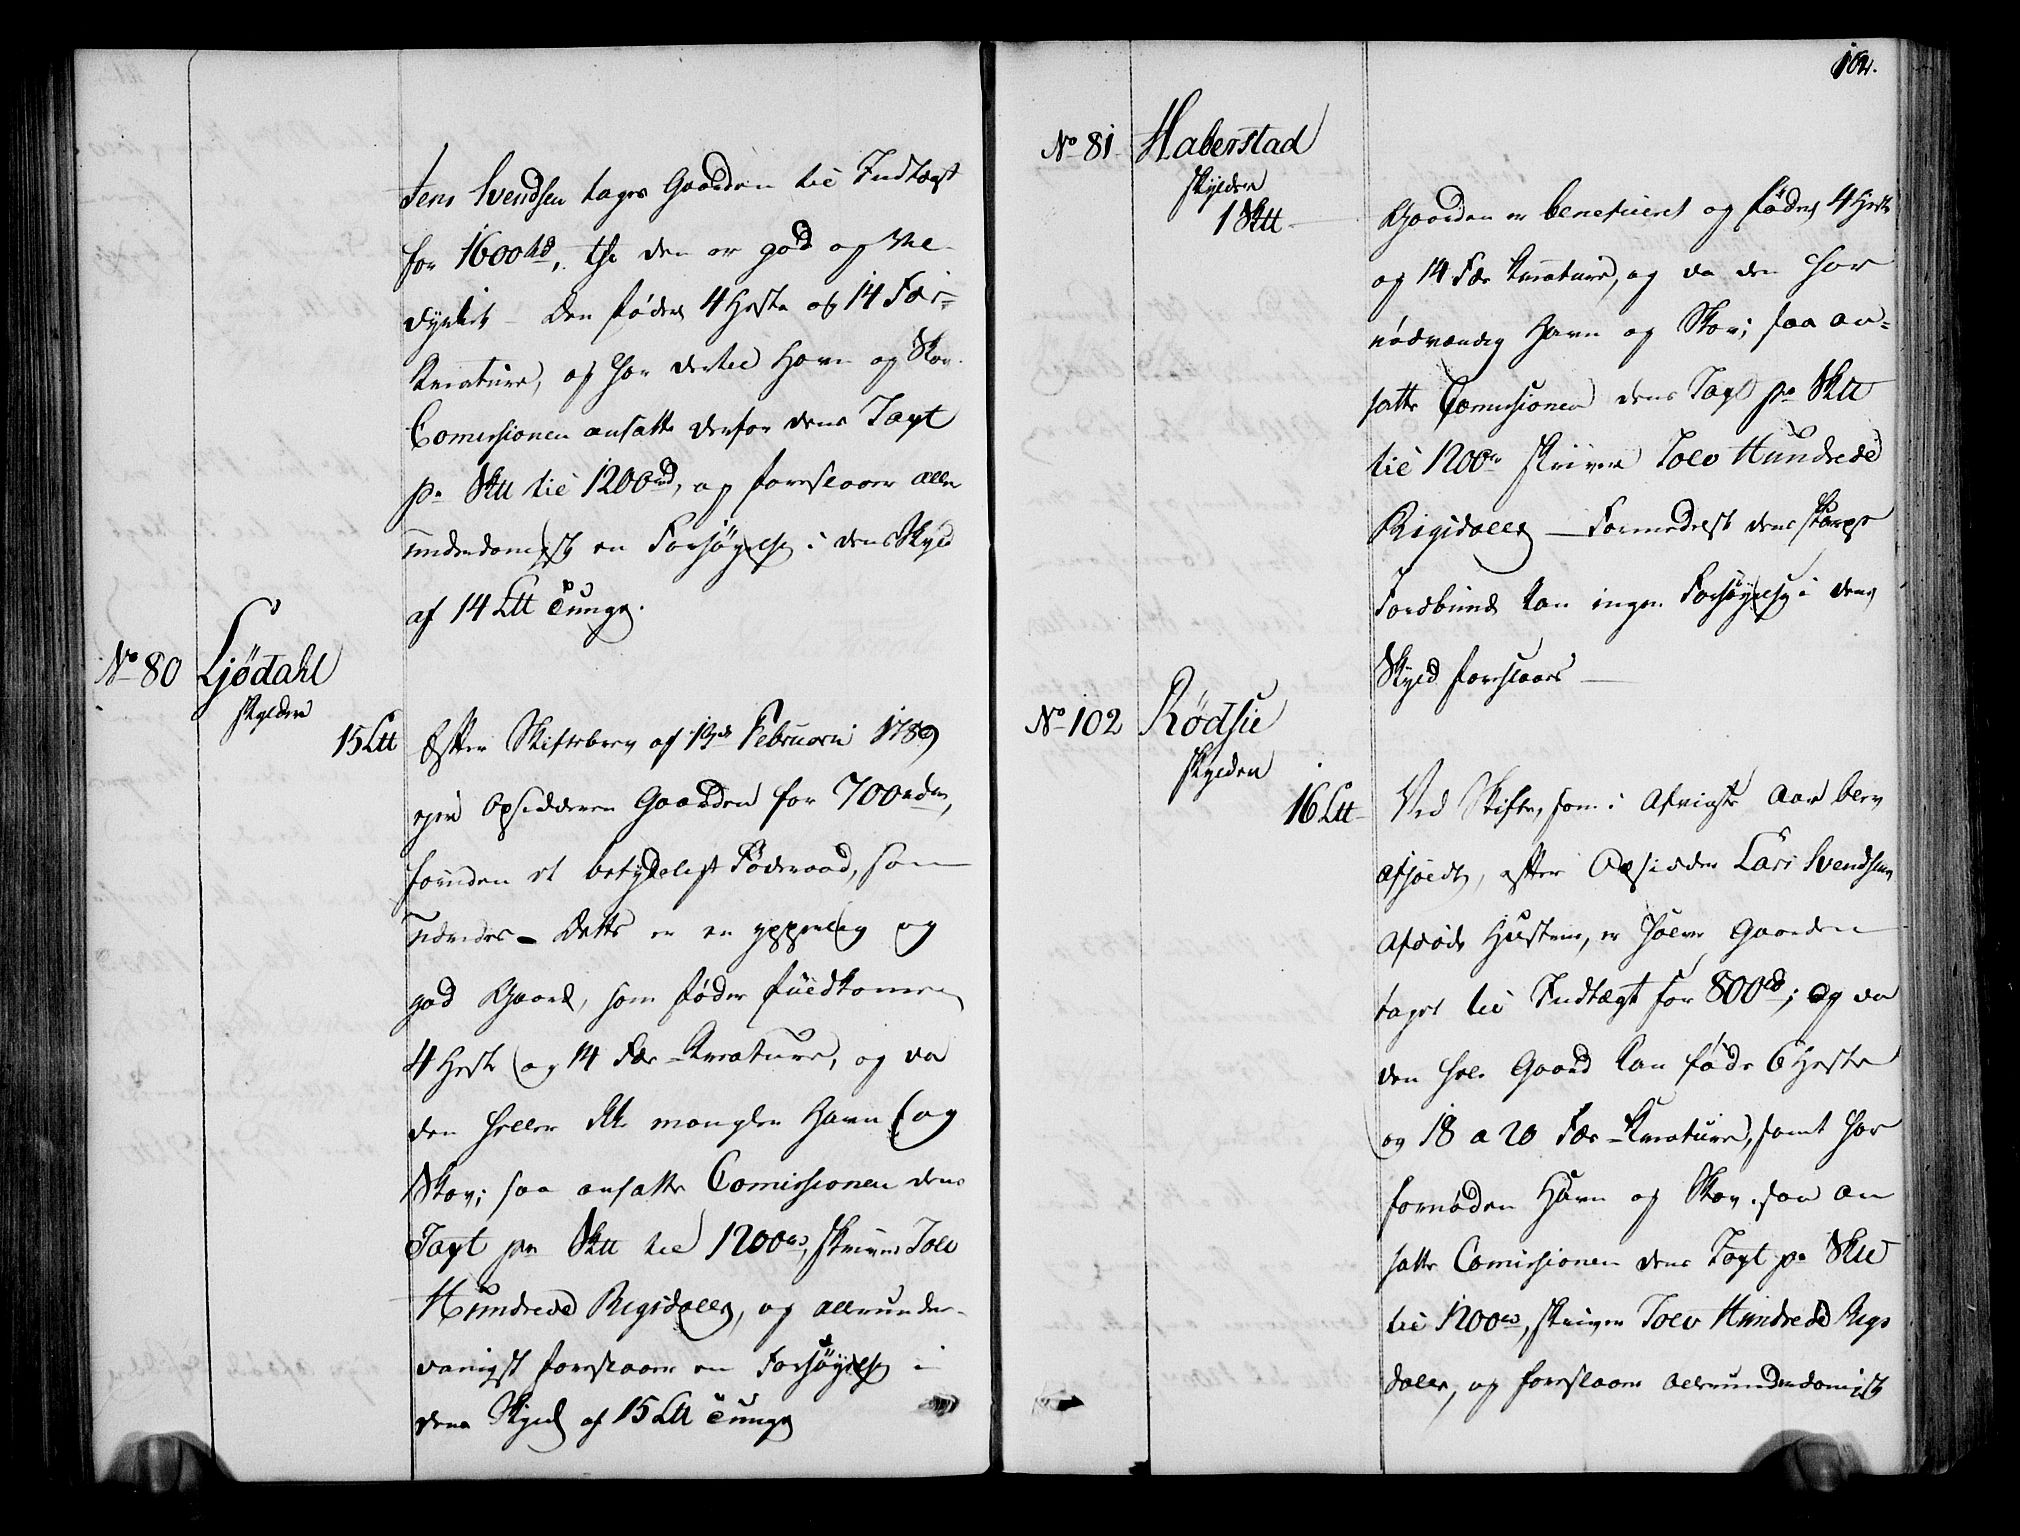 Jens Svendsen tages Gaarden til Indtægt
for 1600 rd, thi den er god og vel
dyrket – Den føder 4 Heste og 14 Fæe-
Kreature, og har dertil Havn og Skov.
Comissionen ansatte derfor dens Taxt
pr Sktt til 1200 rd, og foreslaaer aller
underdanigst en Forhøyelse i dens Skyld
af 14 Ltt Tunge.
No 80 Ljødahl
skylder
15 Ltt Efter Skiftebrev af 19de Februarii 1789
ejer Opsidderen Gaarden for 700 rdr,
foruden et betydeligt Føderaad, som
udredes – Dette er en ypperlig og
god Gaard, som føder fuldkomen
4 Heste og 14 Fæe-Kreature, og da
den heller ikke mangler Havn og
Skov; saa ansatte Comissionen dens
Taxt pr Sktt til 1200 rd, skriver Tolv
Hundrede Rigsdaler, og allerunder-
danigst foreslaaer en Forhøyelse i
dens Skyld af 15 Ltt Tunge
102.
No 81 Haberstad
skylder
1 Sktt –
Gaarden er beneficeret og føder 4 Heste
og 14 Fæe Kreature, og da den har
nødvendig Havn og Skov; saa an-
satte Comissionen dens Taxt pr Sktt
til 1200 rd skriver Tolv Hundrede
Rigsdaler – Formedelst dens skarpe
Jordbund kan ingen Forhøyelse i dens
Skyld foreslaaes –
No 102 Rödsie
skylder
16 Ltt – Ved Skifte, som i afvigte Aar blev
afholdt, efter Opsidder Lars Svendsens
afdøde Hustrue, er halve Gaarden
taget til Indtægt for 800 rd; og da
den hele Gaard kan føde 6 Heste
og 18 a 20 Fæe-Kreature, samt har
fornøden Havn og Skov. saa an
satte Comissionen dens Taxt pr Sktt
til 1200 rd, skriver Tolv Hundrede Rigs
daler, og foreslaaer allerunderdanigst